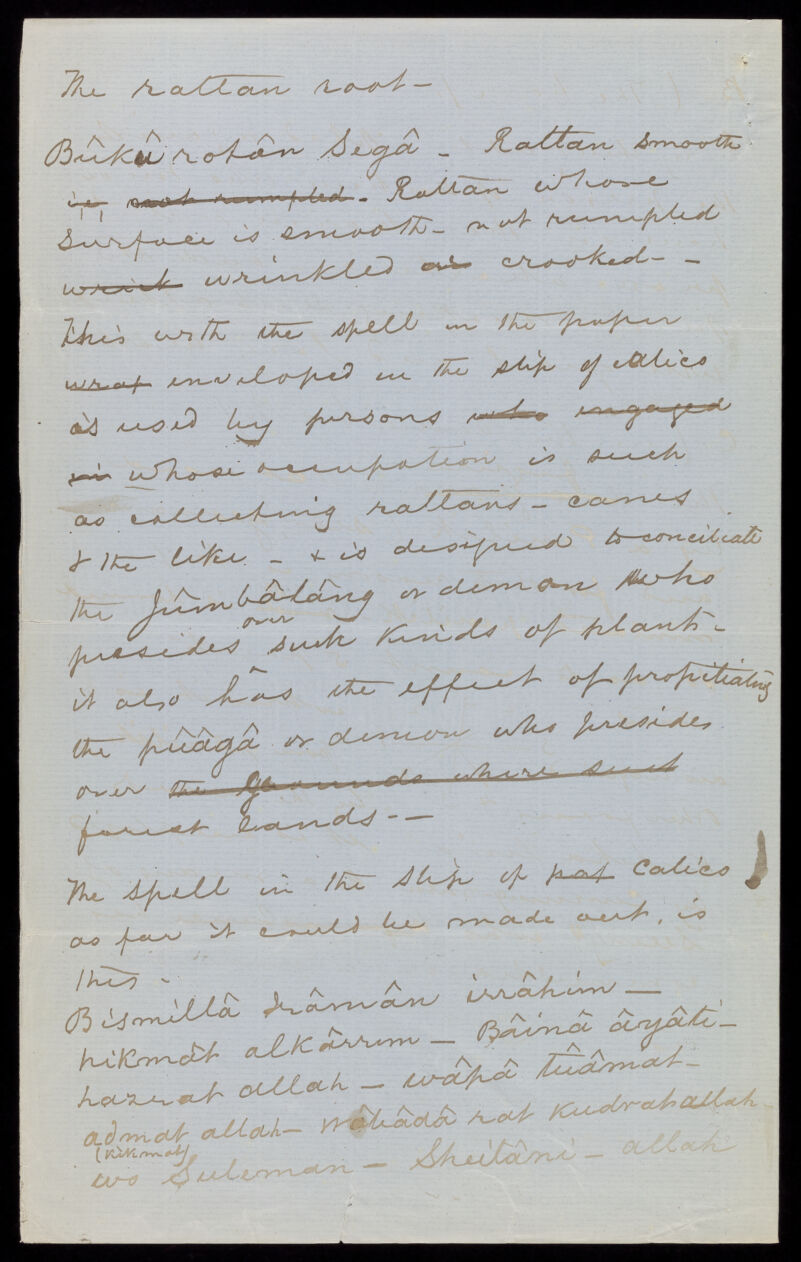 The rattan root -
Bûkû rotân Segâ - Rattan smooth
ie not rumpled - Rattan whose
surface is smooth - not rumpled
wrink wrinkled or crooked - -
This with the spell in the paper
wrap enveloped in the slip of calico
is used by persons who engaged
in whose occupation is such
as collecting rattans - canes
& the like - & is designed to conciliate
the Jûmbâlâng or demon who
presides over such kinds of plants -
it also has the effect of propitiating
the pûâgâ or demon who presides
over the grounds where such
forest lands - -
The spell in the slip of calico
as far it could be made out, is
this -
Bismillâ irrâhim -
hikmât alkârrim - Bâinâ âyâti -
hazrat allah - wâpâ tûâmat -
admat allah - rat Kudratallah -
(hikmat)
wo Suleman - Sheitâni - allah